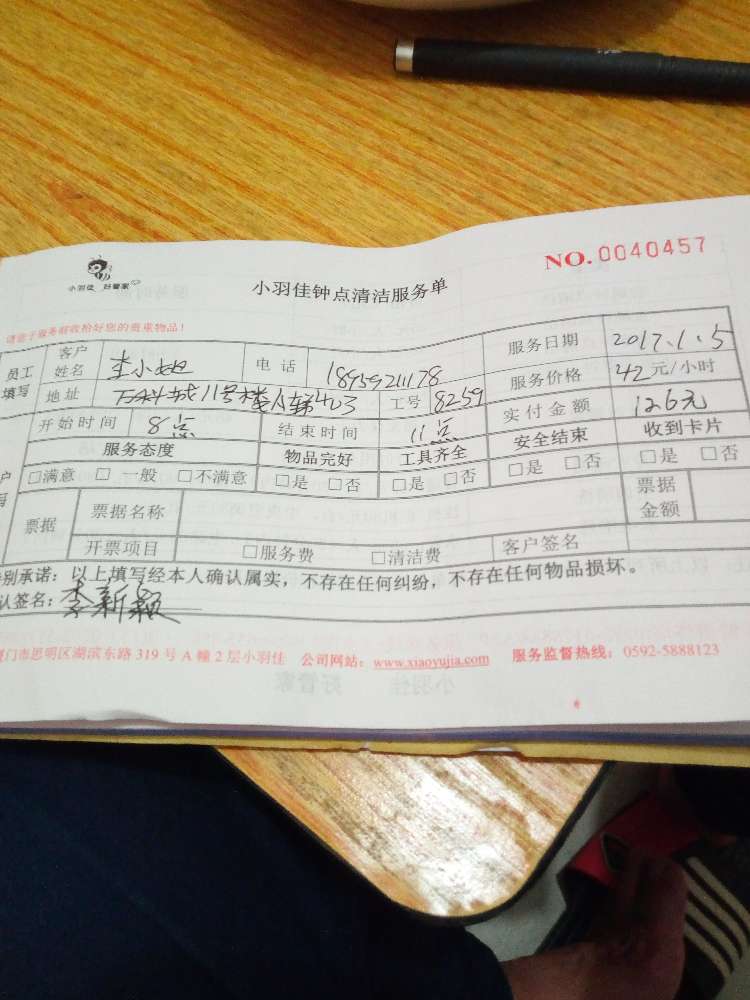 NO.0040457
小羽佳 好管家
小羽佳钟点清洁服务单
请您于服务前收拾好您的贵重物品!
员工填写 客户姓名 李小姐 电话 18959211178 服务日期 2017.1.5
地址 万科城11号楼A梯403 工号 8259 服务价格 42元/小时
开始时间 8点 结束时间 11点 实付金额 126元
服务态度 物品完好 工具齐全 安全结束 收到卡片
□满意 □一般 □不满意 □是 □否 □是 □否 □是 □否 □是 □否
票据 票据名称 票据金额
开票项目 □服务费 □清洁费 客户签名
别承诺:以上填写经本人确认属实,不存在任何纠纷,不存在任何物品损坏。
认签名:李新颖
门市思明区湖滨东路 319 号 A 幢 2 层小羽佳 公司网站:www.xiaoyujia.com 服务监督热线:0592-5888123